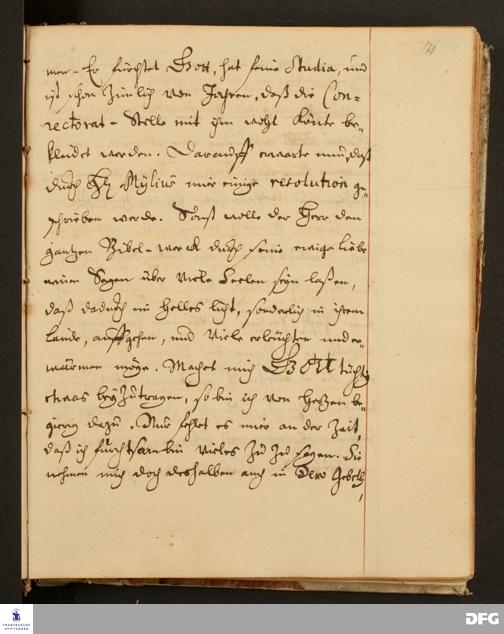 men. Er fürchtet Gott, hat seine Studia, und
ist schon zimlich von Jahren, daß die Con-
rectorat-Stelle mit ihm wohl könte be-
kleidet werden. Darauff erwarte nun, daß
durch H. Mylius mir einige resolution ge-
schrieben werde. Sonst wolle der Herr den
gantzen Bibel-werck durch seine ewige Liebe
einen Segen über viele Seelen seyn laßen,
daß dadurch ein helles licht, sonderlich in ihrem
Lande, auffgehen, und viele erleuchten und er-
wärmen möge. Machet mich Gott tüchtig
etwas beyzutragen, so bin ich von Hertzen be-
gierig dazu. Nur fehlet es mir an der Zeit,
daß ich fürchtsam bin vieles zu zu sagen. Sie
nehmen mich doch deshalben auch in Dero Gebeth,
FRANCKESCHE
STIFTUNGEN
DFG